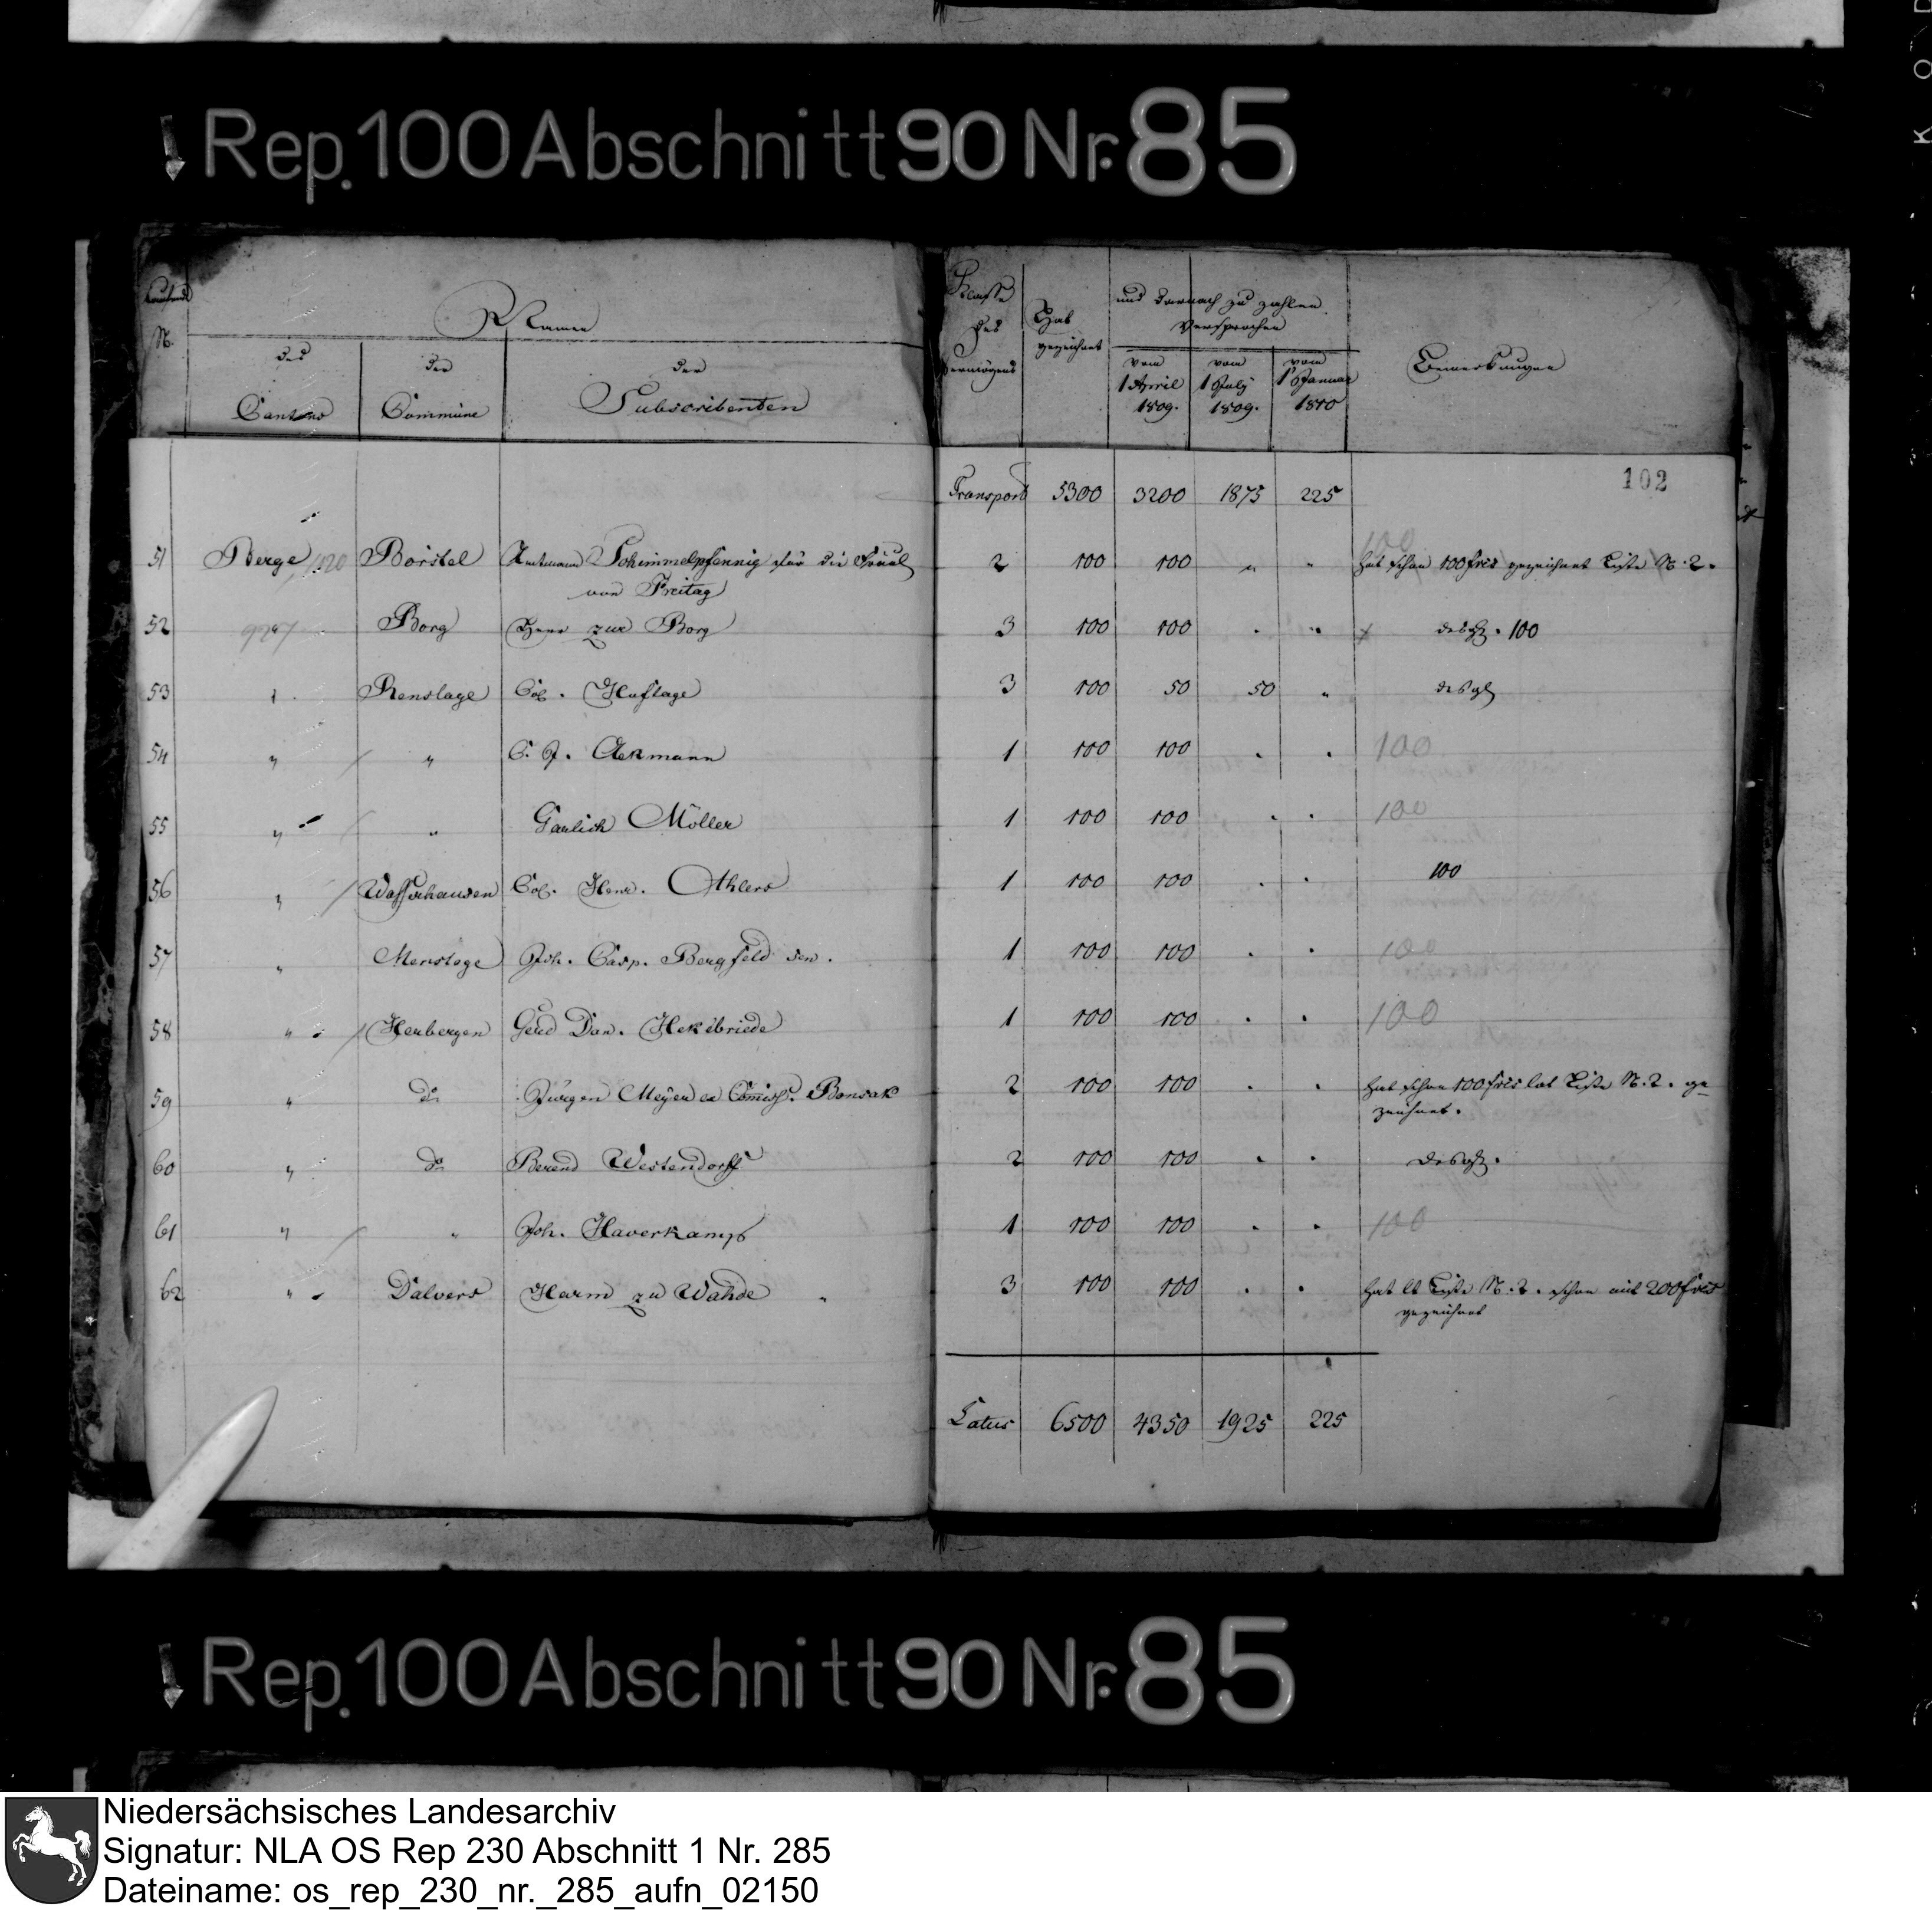 Rep. 100 Abschnitt 90 Nr. 85
Laufende
N.
Namen
des
Cantons
der
Commüne
der
Subscribenten
Klasse
des
Vermögens
Hat
gezeichnet
und darnach zu zahlen
versprochen
vom
1 April
1809.
vom
1 July
1809.
vom
1 Januar
1810
Bemerkungen
102
Transport 5300 3200 1875 225
51 Berge Borstel Amtmann Schimmelpfennig für die Fräul 2 100 100 " " hat schon 100 frcs gezeichnet Liste N. 2.
von Freitag
100
52 Borg Herr zur Borg 3 100 100 . " x desgl. 100
53 " Renslage Col. Huslage 3 100 50 50 " desgl
54 " " C. J. Ackmann 1 100 100 . . 100
55 " " Garlich Möller 1 100 100 . . 100
56 " Wasserhausen Col. Henr. Athlers 1 100 100 . . 100
57 " Menslage Joh. Casp. Bergfeld sen. 1 100 100 . . 100
58 " Herbergen Gerd Dan. Hekebriede 1 100 100 . . 100
59 " do Jürgen Meyer Bonsak 2 100 100 . . hat schon 100 frcs laut Liste N. 2. ge-
zeichnet.
60 " do Berend Westendorff 2 100 100 . . desgl.
61 " " Joh. Haverkamp 1 100 100 . . 100
62 " Dalvers Harm zu Wahde " 3 100 100 . . hat lt Liste N. 2. schon mit 200 frcs
gezeichnet
Latus 6500 4350 1925 225
Rep. 100 Abschnitt 90 Nr. 85
Niedersächsisches Landesarchiv
Signatur: NLA OS Rep 230 Abschnitt 1 Nr. 285
Dateiname: os_rep_230_nr._285_aufn_02150